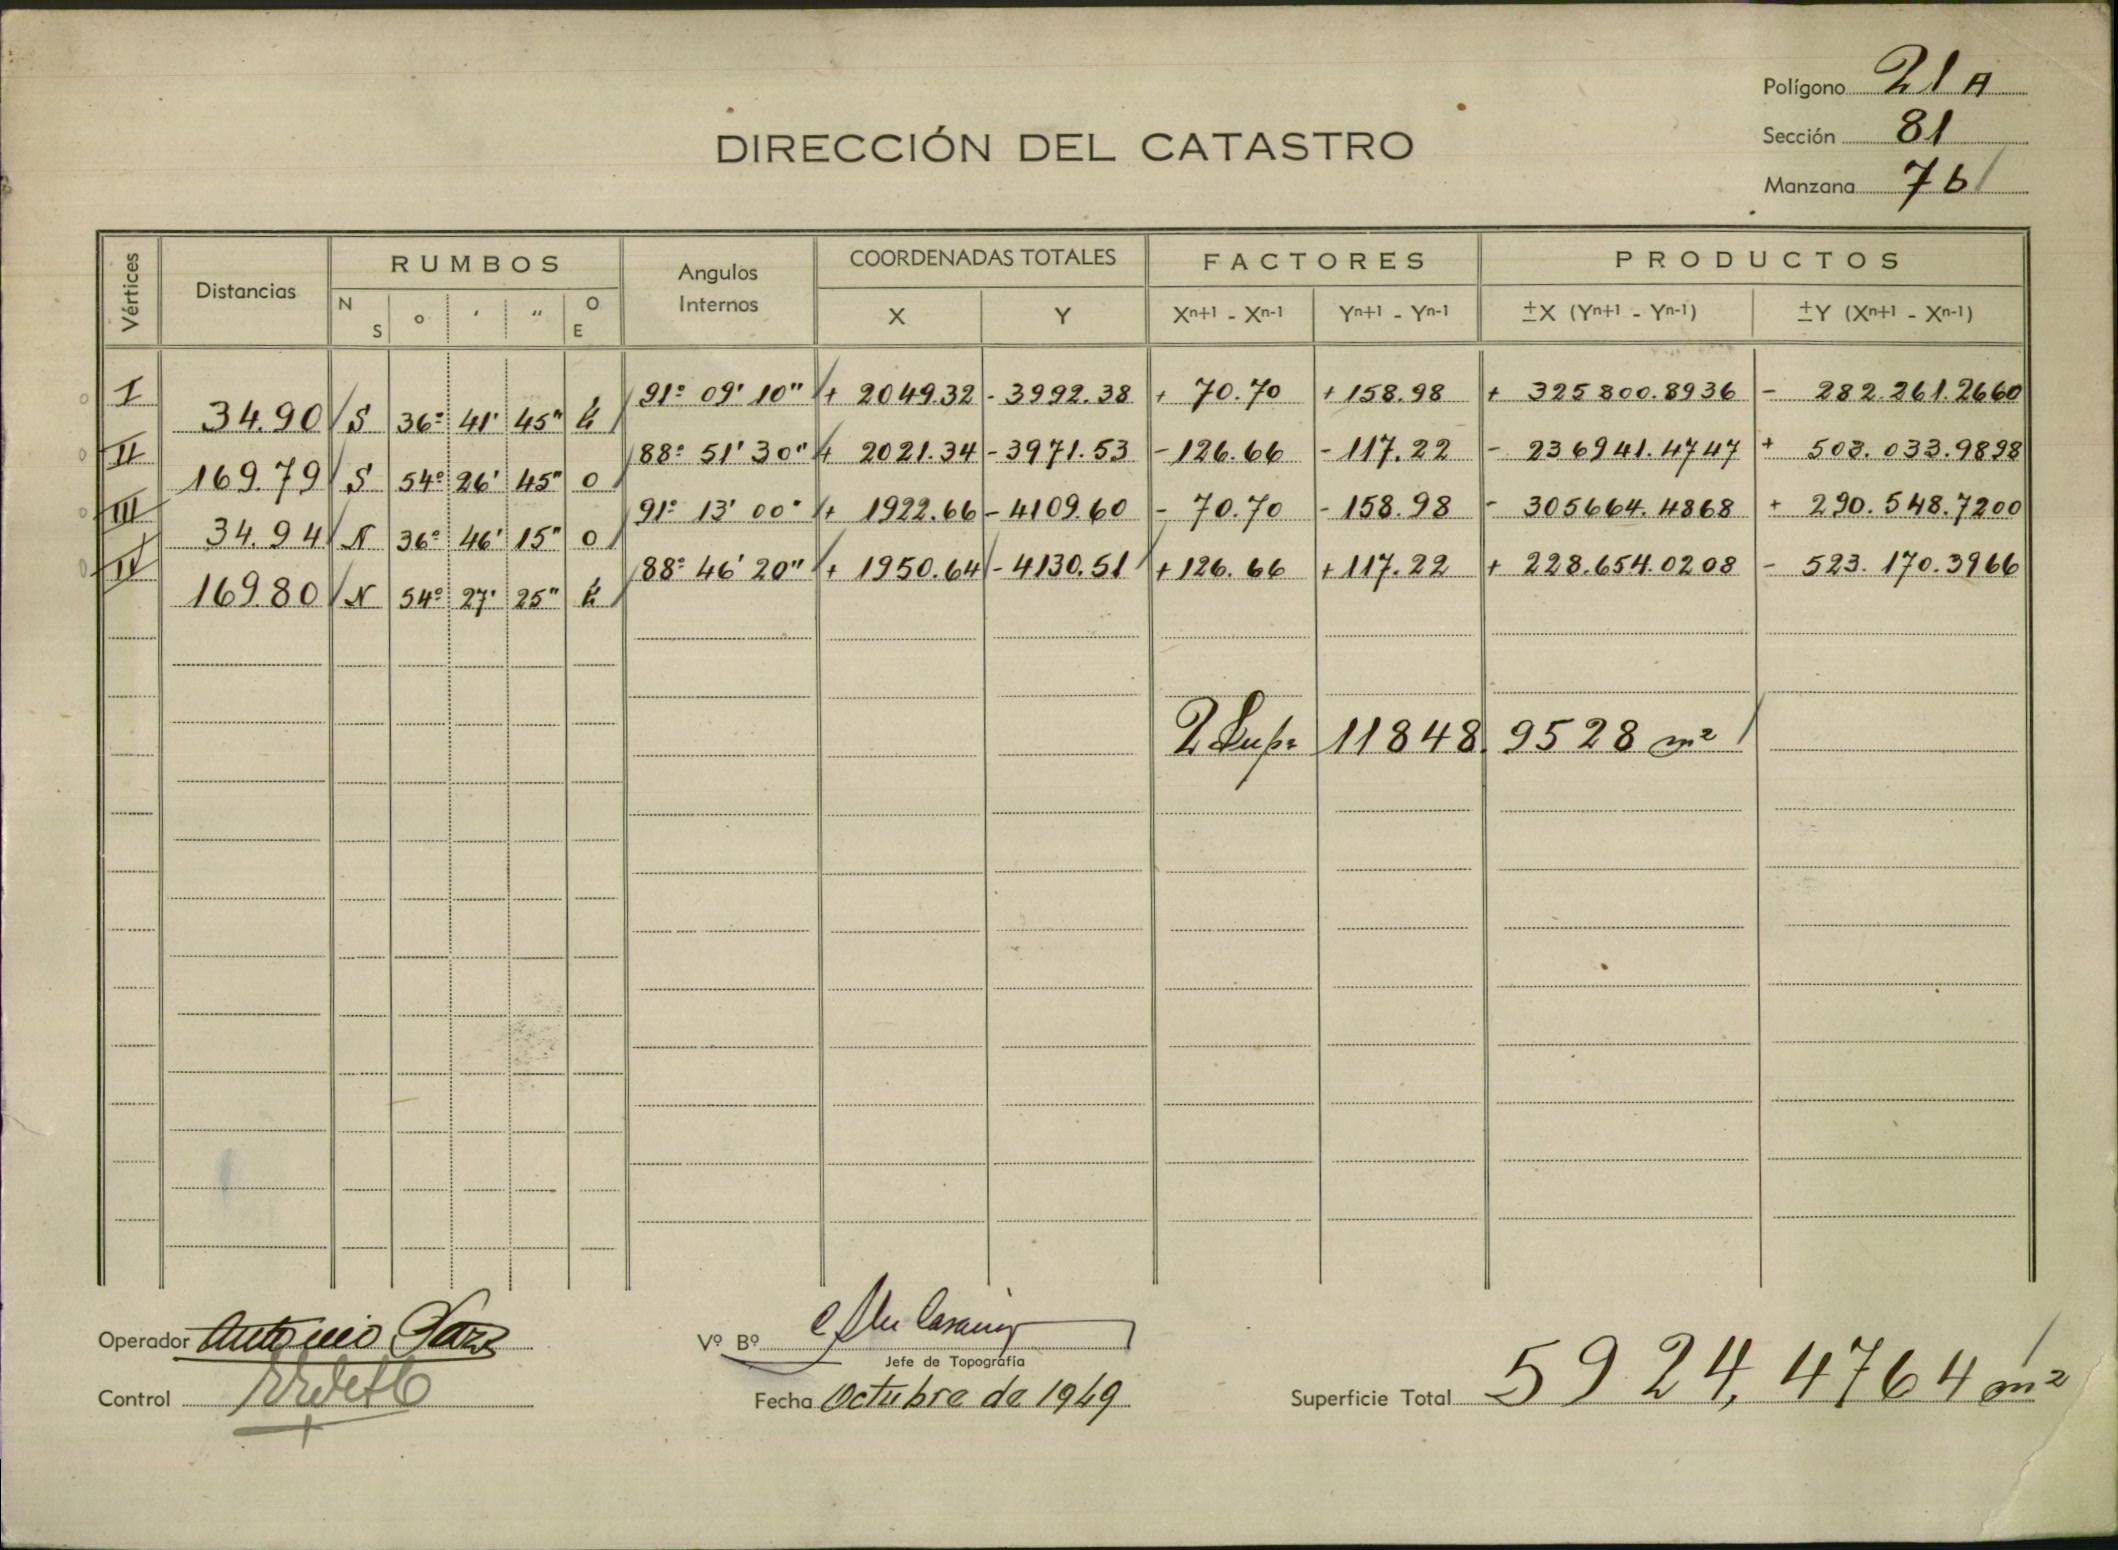 Polígono 21 A
Sección 81
Manzana 7 b
DIRECCIÓN DEL CATASTRO
Vértices Distancias RUMBOS Angulos Internos COORDENADAS TOTALES FACTORES PRODUCTOS
N S ° ' " O E X Y Xn+1 - Xn-1 Yn+1 - Yn-1 ±X (Yn+1 - Yn-1) ±Y (Xn+1 - Xn-1)
I 91º 09' 10" + 2049.32 - 3992.38 + 70.70 + 158.98 + 325800.8936 - 282.261.2660
34.90 S 36º 41' 45" E
II 88º 51' 30" + 2021.34 - 3971.53 - 126.66 - 117.22 - 236941.4747 + 503.033.9898
169.79 S 54º 26' 45" O
III 91º 13' 00" + 1922.66 - 4109.60 - 70.70 - 158.98 - 305664.4868 + 290.548.7200
34.94 N 36º 46' 15" O
IV 88º 46' 20" + 1950.64 - 4130.51 + 126.66 + 117.22 + 228.654.0208 - 523.170.3966
169.80 N 54º 27' 25" E
2 Sup. 11848.9528 m²
Operador Antonio
Vº Bº
Jefe de Topografía
Control
Fecha Octubre de 1949
Superficie Total 5924,4764 m²